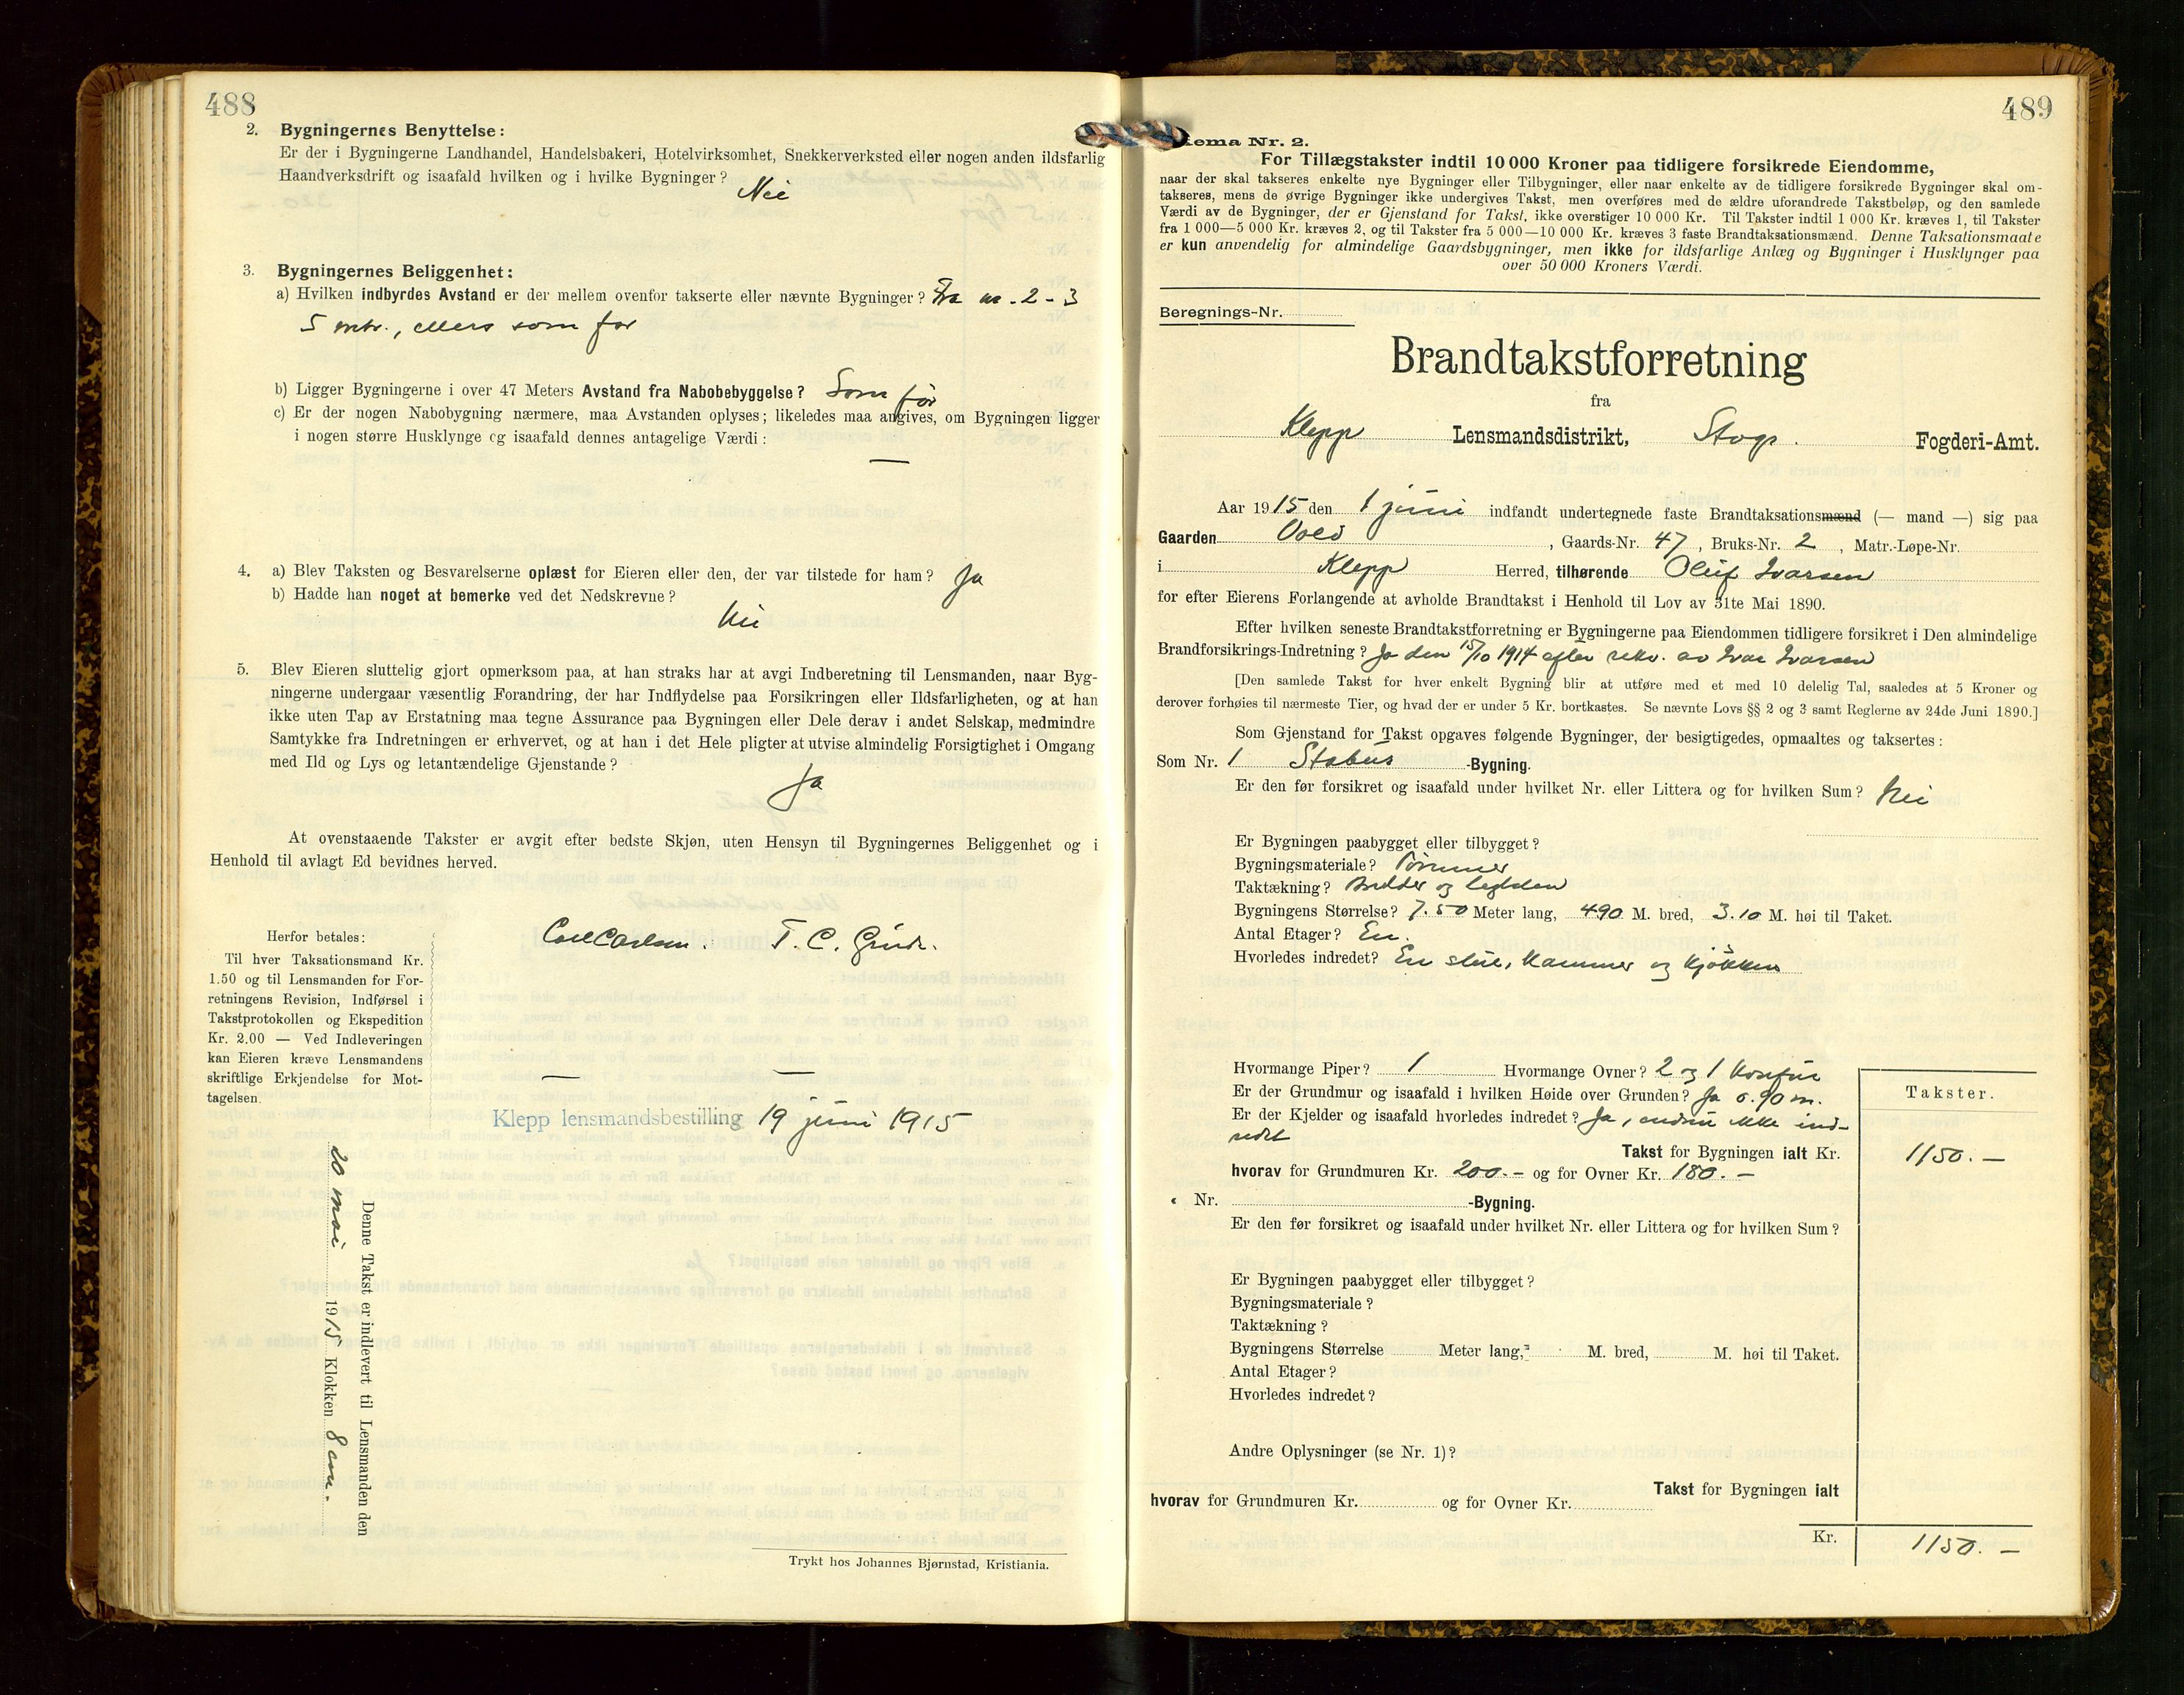 488
2. Bygningernes Benyttelse:
Er der i Bygningerne Landhandel, Handelsbakeri, Hotelvirksomhet, Snekkerverksted eller nogen anden ildsfarlig
Haandverksdrift og isaafald hvilken og i hvilke Bygninger?
Nei
3. Bygningernes Beliggenhet:
a) Hvilken indbyrdes Avstand er der mellem ovenfor takserte eller nævnte Bygninger? Fra nr. 2 - 3
5 mtr., ellers som før
b) Ligger Bygningerne i over 47 Meters Avstand fra Nabobebyggelse? Som før
c) Er der nogen Nabobygning nærmere, maa Avstanden oplyses; likeledes maa angives, om Bygningen ligger
i nogen større Husklynge og isaafald dennes antagelige Værdi:
—
4. a) Blev Taksten og Besvarelserne oplæst for Eieren eller den, der var tilstede for ham? Ja
b) Hadde han noget at bemerke ved det Nedskrevne?
Nei
5. Blev Eieren sluttelig gjort opmerksom paa, at han straks har at avgi Indberetning til Lensmanden, naar Byg-
ningerne undergaar væsentlig Forandring, der har Indflydelse paa Forsikringen eller Ildsfarligheten, og at han
ikke uten Tap av Erstatning maa tegne Assurance paa Bygningen eller Dele derav i andet Selskap, medmindre
Samtykke fra Indretningen er erhvervet, og at han i det Hele pligter at utvise almindelig Forsigtighet i Omgang
med Ild og Lys og letantændelige Gjenstande?
Ja
At ovenstaaende Takster er avgit efter bedste Skjøn, uten Hensyn til Bygningernes Beliggenhet og i
Henhold til avlagt Ed bevidnes herved.
Carl Carlsen. T. C. Grude.
Herfor betales:
Til hver Taksationsmand Kr.
1.50 og til Lensmanden for For-
retningens Revision, Indførsel i
Takstprotokollen og Ekspedition
Kr. 2.00 — Ved Indleveringen
kan Eieren kræve Lensmandens
skriftlige Erkjendelse for Mot-
tagelsen.
— —
Klepp lensmandsbestilling 19 juni 1915
Denne Takst er indlevert til Lensmanden den
20 mai 1915 Klokken 8 em.
Trykt hos Johannes Bjørnstad, Kristiania.
489
ema Nr. 2.
For Tillægstakster indtil 10 000 Kroner paa tidligere forsikrede Eiendomme,
naar der skal takseres enkelte nye Bygninger eller Tilbygninger, eller naar enkelte av de tidligere forsikrede Bygninger skal om-
takseres, mens de øvrige Bygninger ikke undergives Takst, men overføres med de ældre uforandrede Takstbeløp, og den samlede
Værdi av de Bygninger, der er Gjenstand for Takst, ikke overstiger 10 000 Kr. Til Takster indtil 1 000 Kr. kræves 1, til Takster
fra 1 000—5 000 Kr. kræves 2, og til Takster fra 5 000—10 000 Kr. kræves 3 faste Brandtaksationsmænd. Denne Taksationsmaate
er kun anvendelig for almindelige Gaardsbygninger, men ikke for ildsfarlige Anlæg og Bygninger i Husklynger paa
over 50 000 Kroners Værdi.
Beregnings-Nr.
Brandtakstforretning
fra
Klepp Lensmandsdistrikt, Stvgr. Fogderi-Amt.
Aar 1915 den 1 juni indfandt undertegnede faste Brandtaksationsmænd (— mand —) sig paa
Gaarden Vold, Gaards-Nr. 47, Bruks-Nr. 2, Matr.-Løpe-Nr.
i Klepp Herred, tilhørende Oluf Ivarsen
for efter Eierens Forlangende at avholde Brandtakst i Henhold til Lov av 31te Mai 1890.
Efter hvilken seneste Brandtakstforretning er Bygningerne paa Eiendommen tidligere forsikret i Den almindelige
Brandforsikrings-Indretning? Ja den 15/10 1914 efter rekv. av Ivar Ivarsen
[Den samlede Takst for hver enkelt Bygning blir at utføre med et med 10 delelig Tal, saaledes at 5 Kroner og
derover forhøies til nærmeste Tier, og hvad der er under 5 Kr. bortkastes. Se nævnte Lovs §§ 2 og 3 samt Reglerne av 24de Juni 1890.]
Som Gjenstand for Takst opgaves følgende Bygninger, der besigtigedes, opmaaltes og taksertes:
Som Nr. 1 Stabus-Bygning.
Er den før forsikret og isaafald under hvilket Nr. eller Littera og for hvilken Sum? Nei
Er Bygningen paabygget eller tilbygget?
Bygningsmateriale? Tømmer
Taktækning? Bredder og teglsten
Bygningens Størrelse? 7.50 Meter lang, 4.90 M. bred, 3.10 M. høi til Taket.
Antal Etager? En.
Hvorledes indredet? En stue, kammer og kjøkken
Hvormange Piper? 1 Hvormange Ovner? 2 og 1 komfur
Er der Grundmur og isaafald i hvilken Høide over Grunden? Ja 0.90 m.
Er der Kjelder og isaafald hvorledes indredet? Ja, endnu ikke ind-
redet
Takster.
Takst for Bygningen ialt Kr. 1150.—
hvorav for Grundmuren Kr. 200.— og for Ovner Kr. 180.—
« Nr. -Bygning.
Er den før forsikret og isaafald under hvilket Nr. eller Littera og for hvilken Sum?
Er Bygningen paabygget eller tilbygget?
Bygningsmateriale?
Taktækning?
Bygningens Størrelse Meter lang, M. bred, M. høi til Taket.
Antal Etager?
Hvorledes indredet?
Andre Oplysninger (se Nr. 1)?
Takst for Bygningen ialt
hvorav for Grundmuren Kr. og for Ovner Kr.
Kr. 1150.—